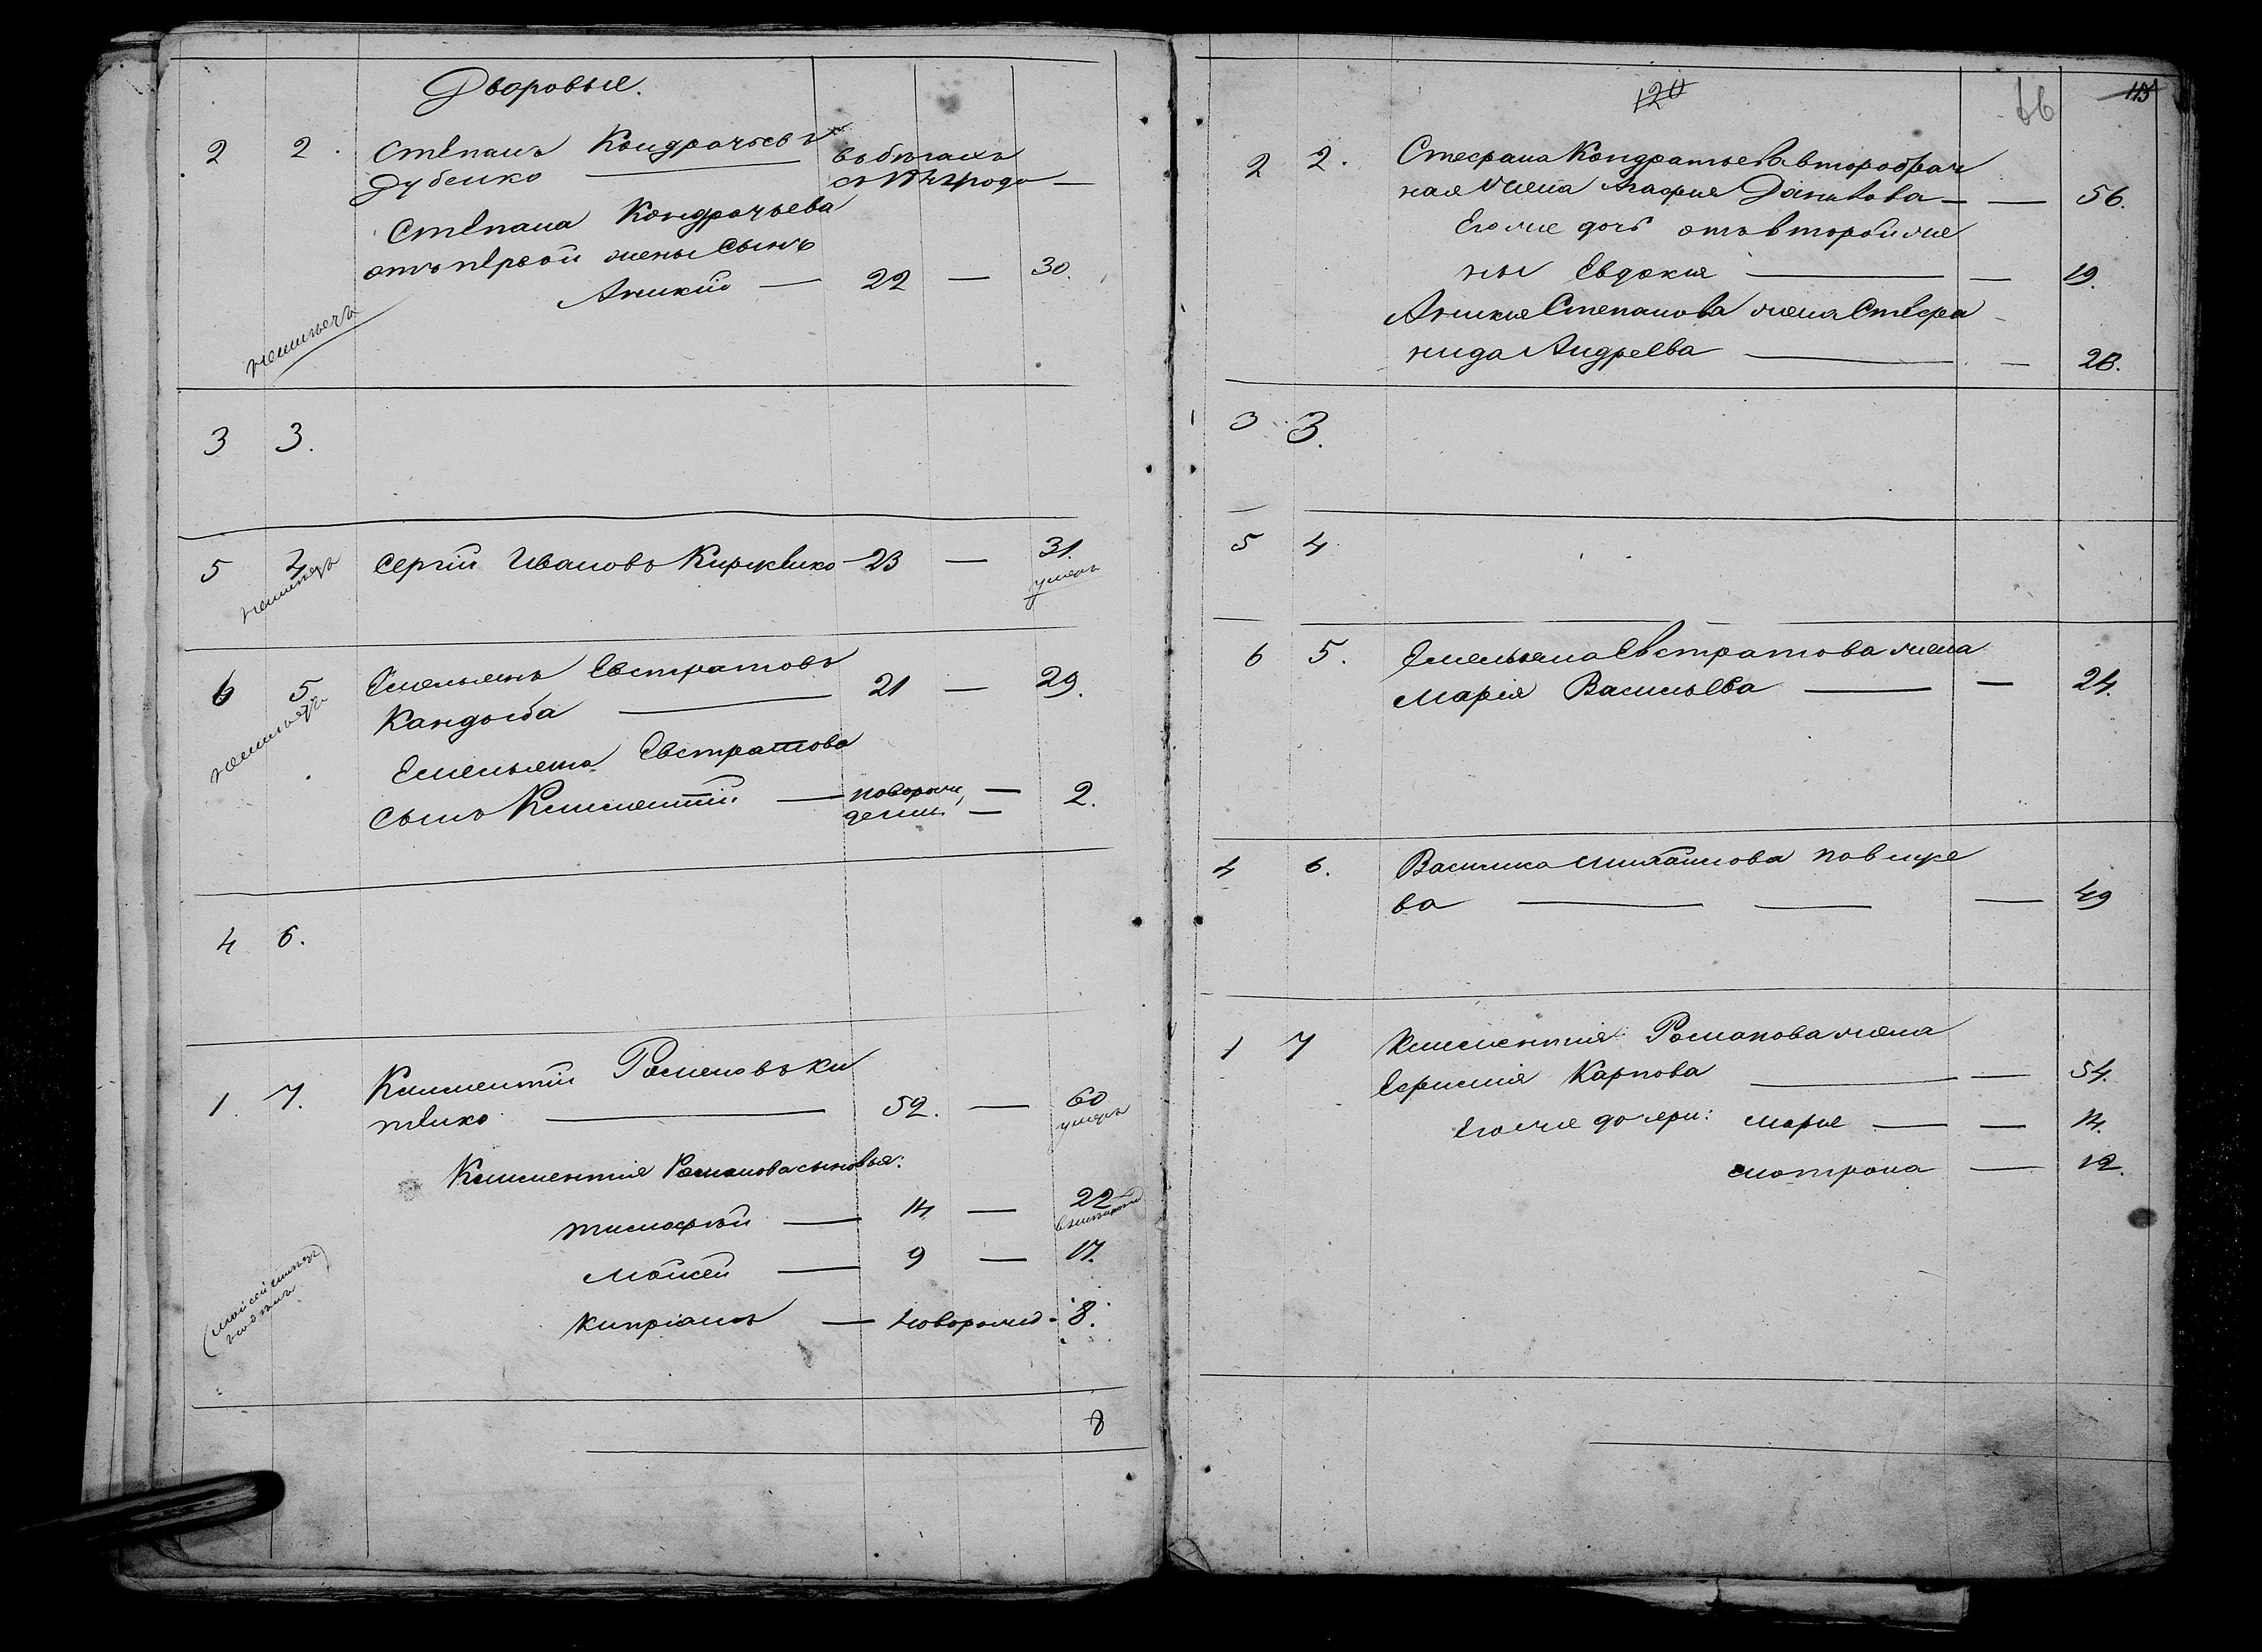 Дворовые.
2 2. Степанъ Кондратьевъ въ бегахъ
Дубенко — съ 1841 года —
Степана Кондратьева
отъ первой жены сынъ
Аникій — 22 — 30.
3 3.
5 4 Сергій Ивановъ Кирженко — 23 — 31.
умеръ
6 5 Емельянъ Евстратовъ
Кандыба — 21 — 29.
Емельяна Евстратова
сынъ Климентій — новорож —
денъ — 2.
4 6.
1. 7. Климентій Романовъ Ки
тенко — 52. — 60
умеръ
Климентія Романова сыновья:
Тимофѣй — 14 — 22
Моисей — 9 — 17.
Кипріанъ — новорожд. 8.
8
120 66 115
2 2. Степана Кондратьева второбрач
ная жена Агафия Данилова — — 56.
Его же дочь отъ второй же
ны Евдокия — — 19.
Аникия Степанова жена Стефа
нида Андреева — — 28.
3 3.
5 4
6 5. Емельяна Евстратова жена
Марія Васильева — — 24.
4 6. Василиса Михайлова
ва — — — 49
1 7 Климентия Романова жена
Ефимія Карпова — — 54.
Его же дочери: Марья — — 14.
Мотрона — 12.